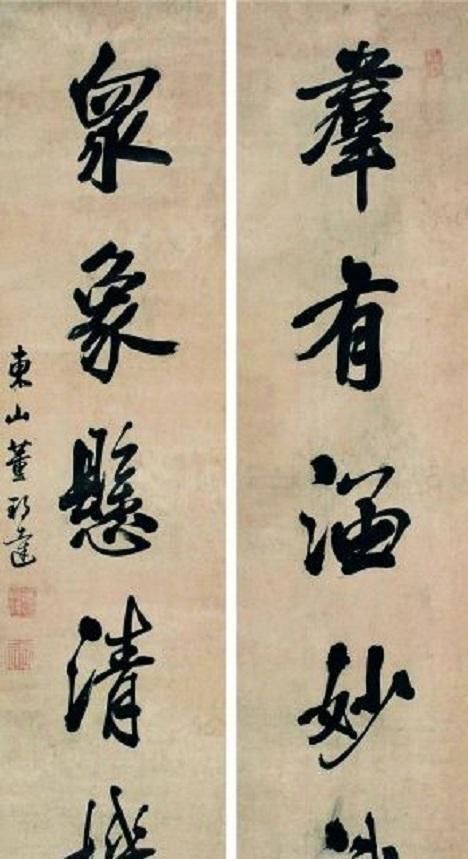 羣有涵妙
衆象懸清
東山董邦達